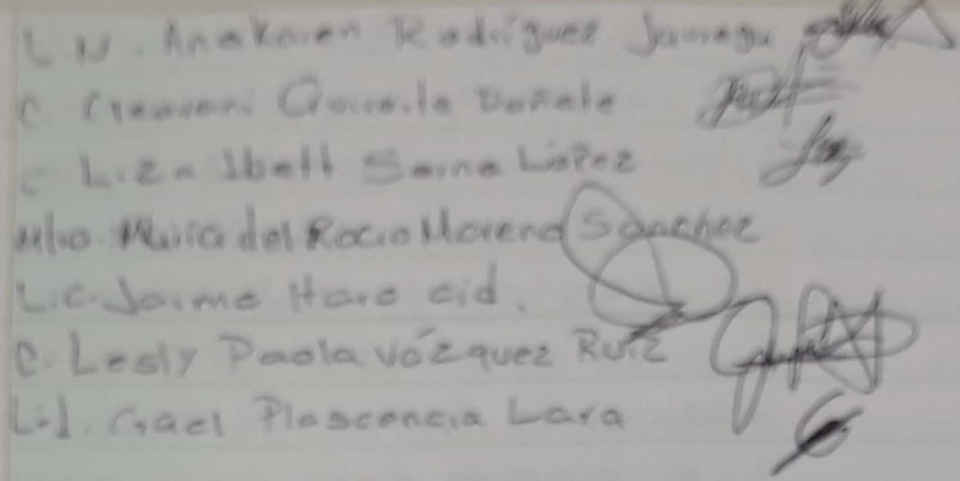 L.N. Anakaren Rodríguez
C Geovani Donate
C Liza Ibett Serna López
Mtro. María del Rocio Moreno Sánchez
Lic. Jaime Haro Cid.
C. Lesly Paola Vázquez Ruiz
L.I. Gael Plascencia Lara